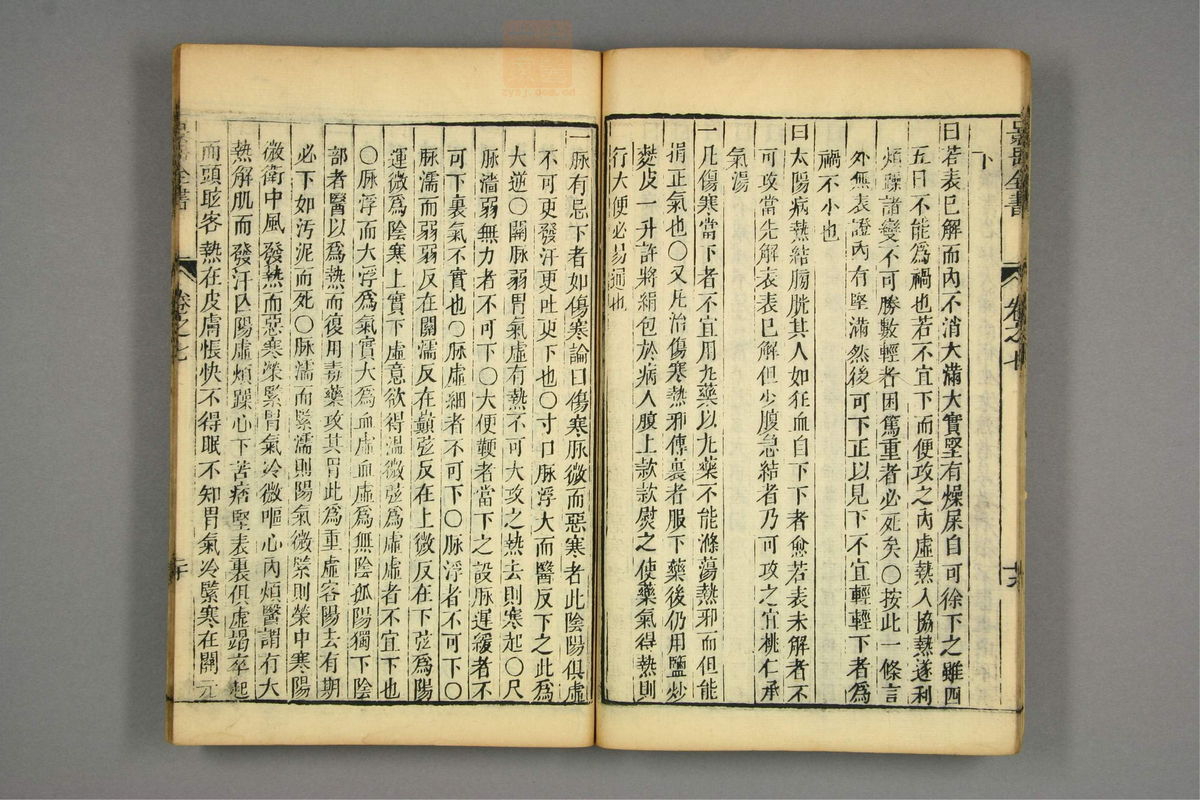 下
曰若表已解而內不消大滿大實堅有燥屎自可徐下之雖四
五日不能爲禍也若不宜下而便攻之內虛熱入協熱遂利
煩躁諸變不可勝數輕者困篤重者必死矣○按此一條言
外無表證內有堅滿然後可下正以見下不宜輕輕下者爲
禍不小也
曰太陽病熱結膀胱其人如狂血自下下者愈若表未解者不
可攻當先解表表已解但少腹急結者乃可攻之宜桃仁承
氣湯
一凡傷寒當下者不宜用丸藥以丸藥不能滌蕩熱邪而但能
損正氣也○又凡治傷寒熱邪傳裏者服下藥後仍用鹽炒
麩皮一升許將絹包於病人腹上款款熨之使藥氣得熱則
行大便必易通也
一脉有忌下者如傷寒論曰傷寒脉微而惡寒者此陰陽俱虛
不可更發汗更吐更下也○寸口脉浮大而醫反下之此爲
大逆○關脉弱胃氣虛有熱不可大攻之熱去則寒起○尺
脉濇弱無力者不可下○大便鞕者當下之設脉遲緩者不
可下裏氣不實也○脉虛細者不可下○脉浮者不可下○
脉濡而弱弱反在關濡反在巔弦反在上微反在下弦爲陽
運微爲陰寒上實下虛意欲得溫微弦爲虛虛者不宜下也
○脉浮而大浮爲氣實大爲血虛血虛爲無陰孤陽獨下陰
部者醫以爲熱而復用毒藥攻其胃此爲重虛客陽去有期
必下如汚泥而死○脉濡而緊濡則陽氣微緊則榮中寒陽
微衛中風發熱而惡寒榮緊胃氣冷微嘔心內煩醫謂有大
熱解肌而發汗亡陽虛煩躁心下苦痞堅表裏俱虛竭卒起
而頭眩客熱在皮膚悵怏不得眠不知胃氣冷緊寒在關元
景岳全書
卷之七